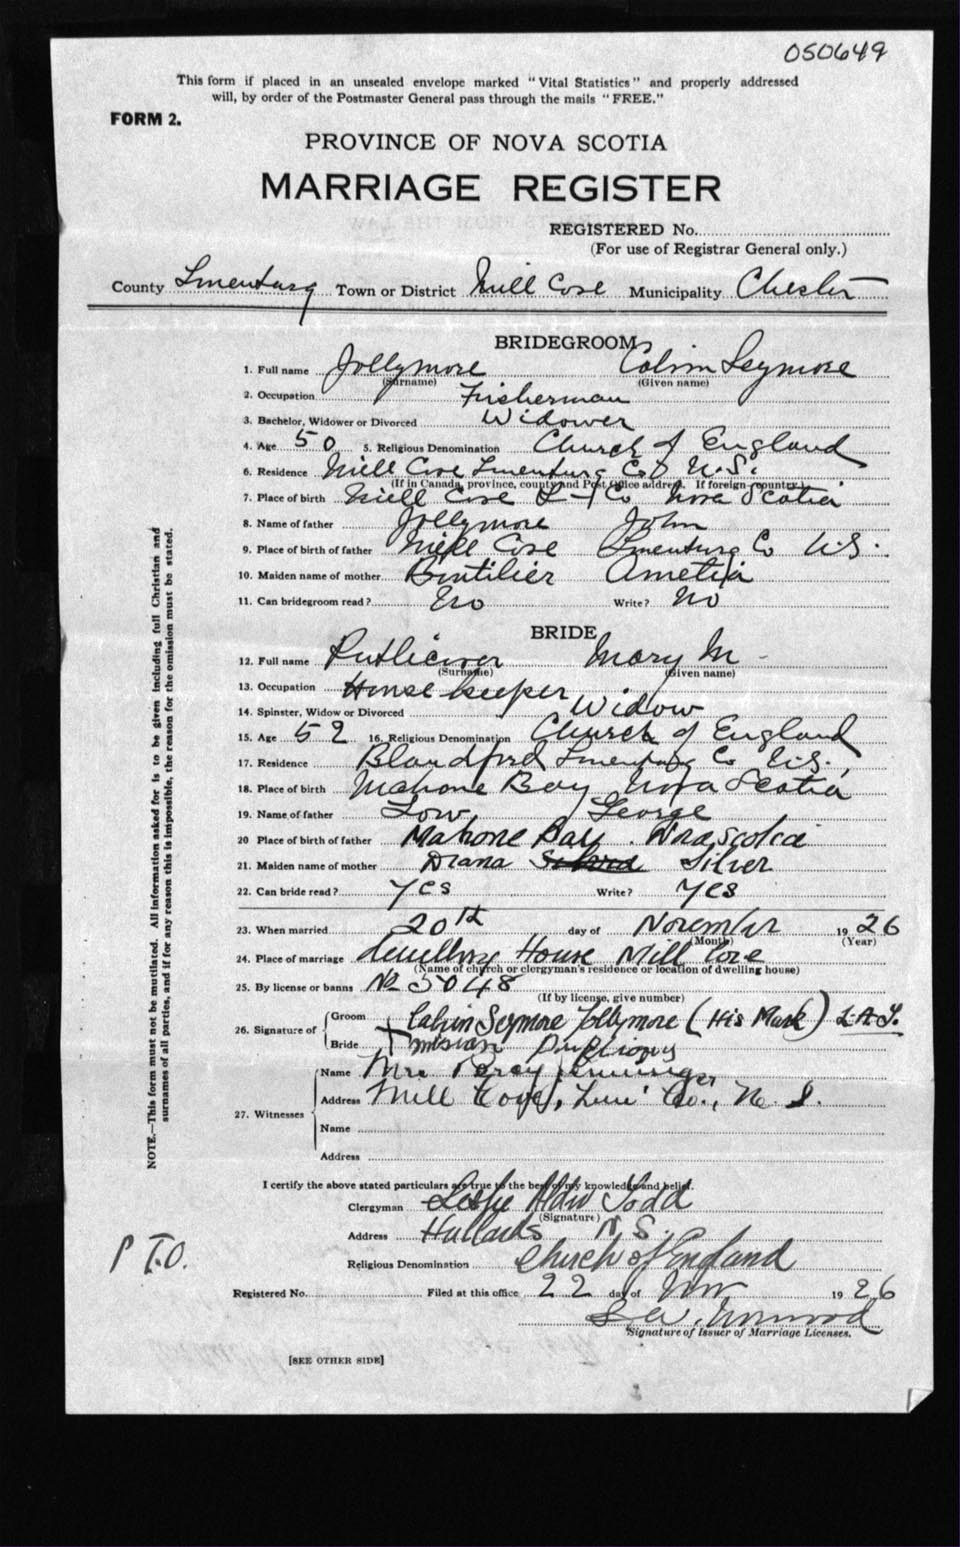 050649
This form if placed in an unsealed envelope marked "Vital Statistics" and properly addressed
will, by order of the Postmaster General pass through the mails "FREE."
FORM 2.
PROVINCE OF NOVA SCOTIA
MARRIAGE REGISTER
REGISTERED No.
(For use of Registrar General only.)
County Lunenburg Town or District Mill Cove Municipality Chester
BRIDEGROOM
1. Full name Jollymore Calvin Seymore
(Surname) (Given name)
2. Occupation Fisherman
3. Bachelor, Widower or Divorced Widower
4. Age 50 5. Religious Denomination Church of England
6. Residence Mill Cove Lunenburg Co N.S.
(If in Canada, province, county and Post Office address. If foreign country)
7. Place of birth Mill Cove Co Nova Scotia
8. Name of father Jollymore John
9. Place of birth of father Mill Cove Lunenburg Co N.S.
10. Maiden name of mother Boutilier
11. Can bridegroom read? No Write? No
BRIDE
12. Full name Mary M
(Surname) (Given name)
13. Occupation House keeper
14. Spinster, Widow or Divorced Widow
15. Age 52 16. Religious Denomination Church of England
17. Residence Blandford Lunenburg Co N.S.
18. Place of birth Mahone Bay Nova Scotia
19. Name of father Low George
20 Place of birth of father Mahone Bay. Nova Scotia
21. Maiden name of mother Diana Silver
22. Can bride read? Yes Write? Yes
23. When married 20th day of November 1926
(Month) (Year)
24. Place of marriage dwelling House Mill Cove
(Name of church or clergyman's residence or location of dwelling house)
25. By license or banns No 5048
(If by license, give number)
26. Signature of
Groom Calvin Seymore Jollymore (His Mark) L.A.T.
Bride
27. Witnesses
Name Mrs Percy
Address Mill Cove, Lun. Co., N. S.
Name
Address
I certify the above stated particulars are true to the best of my knowledge and belief.
Clergyman Leslie Todd
(Signature)
Address Hubbards N.S.
Religious Denomination Church of England
Registered No. Filed at this office 22 day of Nov 1926
Signature of Issuer of Marriage Licenses.
P.T.O.
[SEE OTHER SIDE]
NOTE.—This form must not be mutilated. All information asked for is to be given including full Christian and
surnames of all parties, and if for any reason this is impossible, the reason for the omission must be stated.